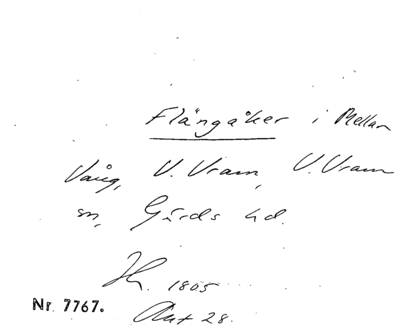 Flängåker i Mellan
Vång, V. Vram, V. Vram
sn, Gärds hd.
Hr. 1805
Akt 28.
Nr. 7767.